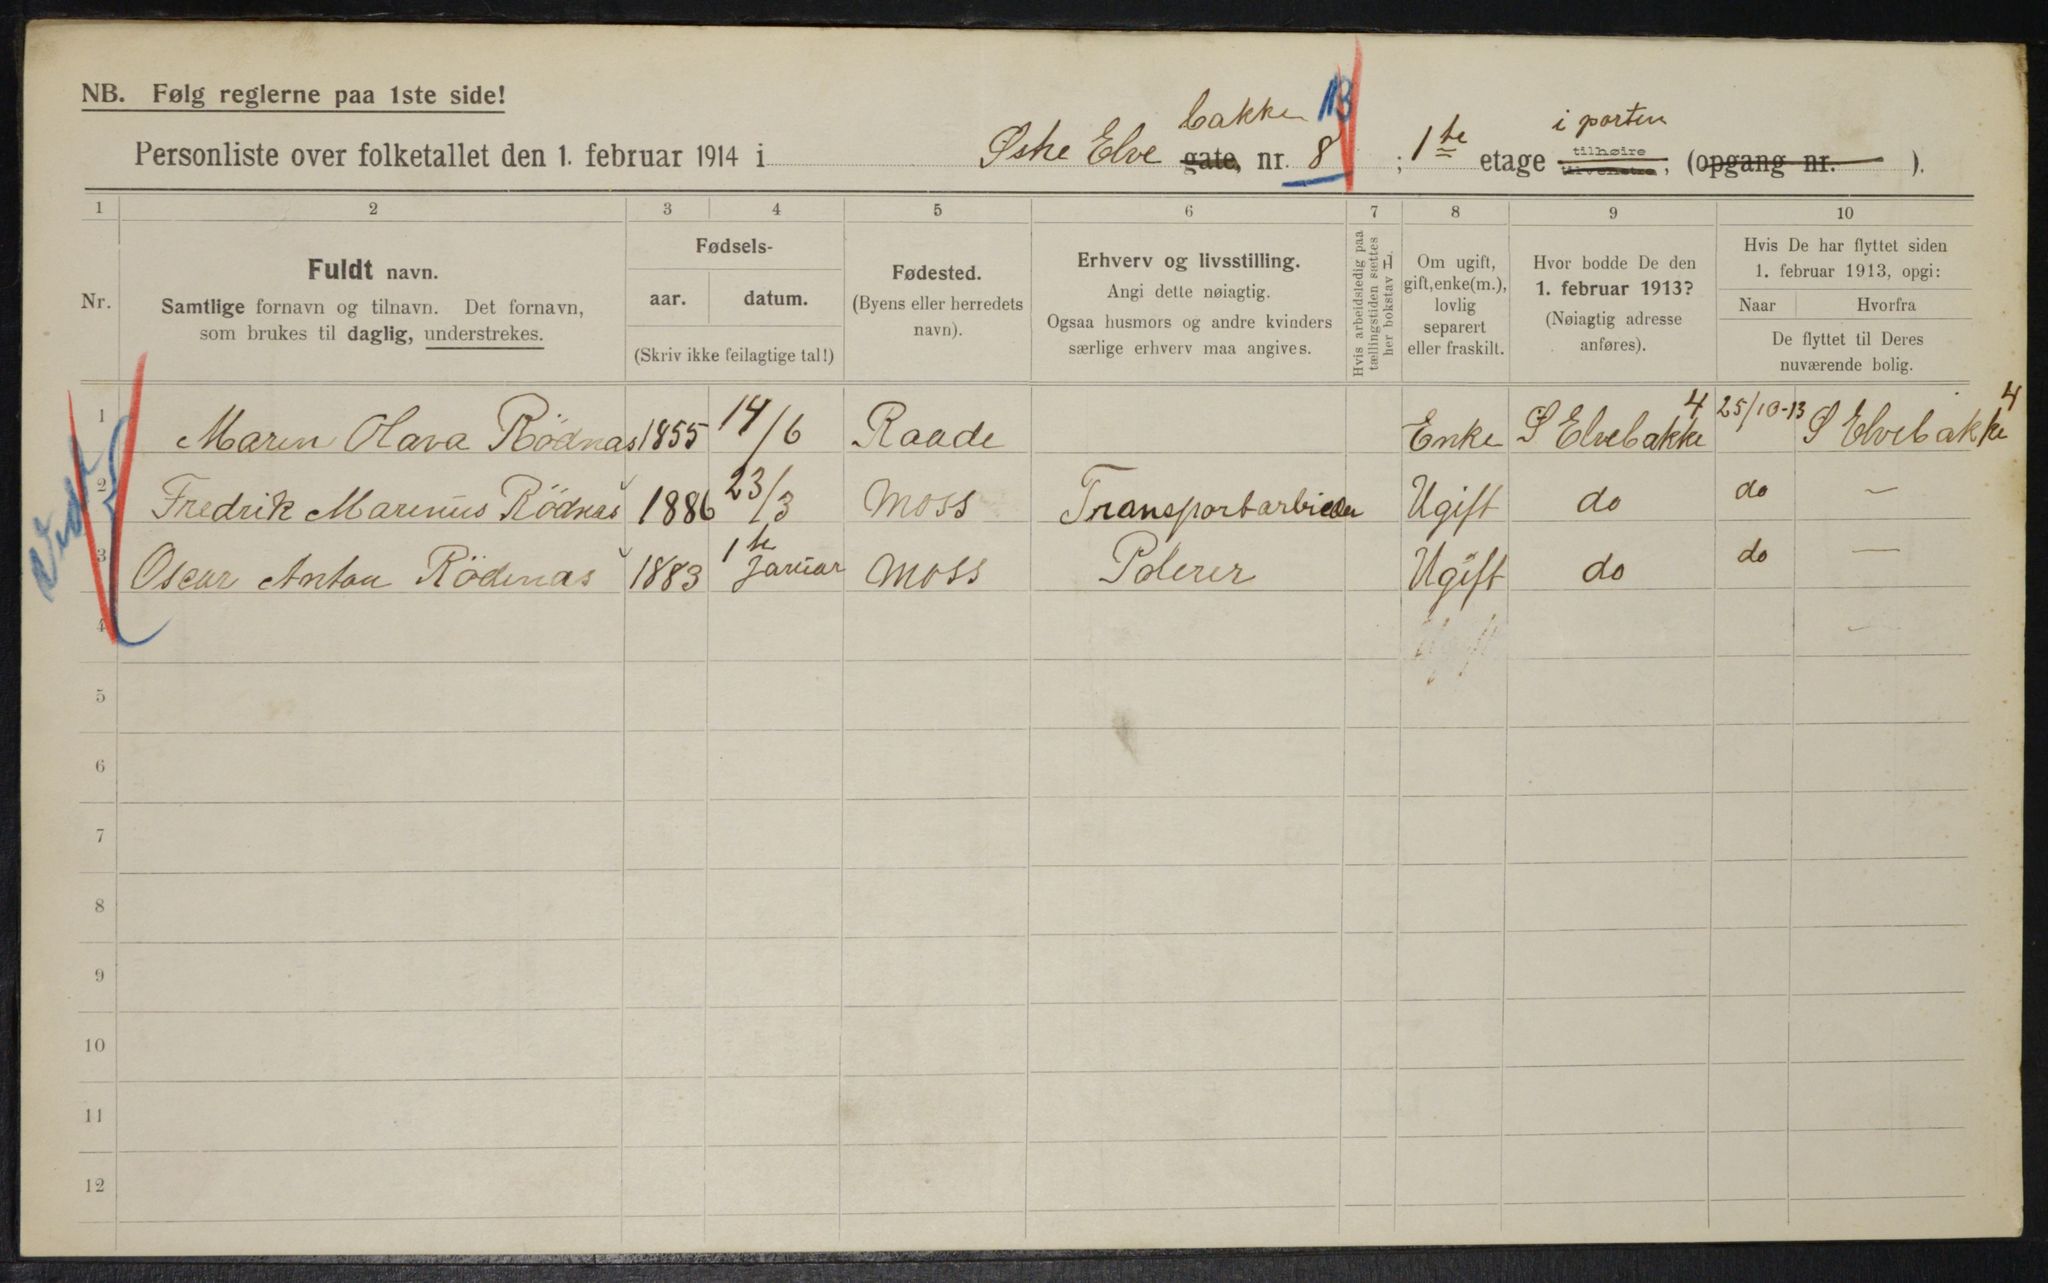 NB. Følg reglerne paa 1ste side!
Personliste over folketallet den 1. februar 1914 i Østre Elve bakke gate, nr. 8 13; 1ste etage i porten tilhøire tilvenstre, (opgang nr. ).
1 2 3 4 5 6 7 8 9 10
Nr.
Fuldt navn.
Samtlige fornavn og tilnavn. Det fornavn,
som brukes til daglig, understrekes.
Fødsels-
aar. datum.
(Skriv ikke feilagtige tal!)
Fødested.
(Byens eller herredets
navn).
Erhverv og livsstilling.
Angi dette nøiagtig.
Ogsaa husmors og andre kvinders
særlige erhverv maa angives.
Hvis arbeidsledig paa
tællingstiden sættes
her bokstav L
Om ugift,
gift, enke(m.),
lovlig
separert
eller fraskilt.
Hvor bodde De den
1. februar 1913?
(Nøiagtig adresse
anføres).
Hvis De har flyttet siden
1. februar 1913, opgi:
Naar Hvorfra
De flyttet til Deres
nuværende bolig.
1 Maren Olava Rödnas 1855 14/6 Raade Enke Ø Elvebakke 4 25/10-13 Ø Elvebakke 4
2 Fredrik Marinius Rödnas 1886 23/3 Moss Transportarbieder Ugift do do —
3 Oscar Anton Rödenas 1883 1ste Januar Moss Polerer Ugift do do —
4 —
5
6
7
8
9
10
11
12